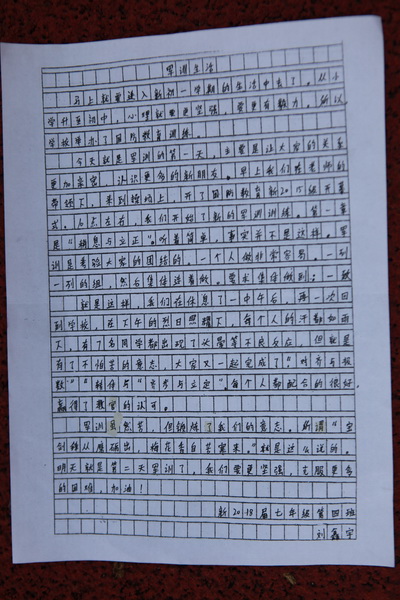 军训生活
马上就要进入新初一学期的生活中去了。从小
学升至初中，心理就要更坚强，要更有毅力。所以，
学校举办了国防教育训练。
今天就是军训的第一天，主要是让大家的关系
更加亲密，认识更多的新朋友。早上我们在老师的
带领下，来到操场上，开了国防教育新2015级开幕
式。八点左右，我们开始了新的军训训练。第一章
是"稍息与立正"。听着简单，事实并不是这样。军
训是考验大家的团结的，一个人做非常容易。一列
一列的组，然后集体连着做。要求集体做到：一致
就是这样，我们在休息了一中午后，再一次回
到学校。在下午的烈日照耀下，每个人的汗都如雨
下，有了名同学都出现了头晕等不良反应，但就是
有了不怕苦的意志，大家又一起完成了"对齐与报
数""转体与""齐步与立定"。每个人都配合的很好，
赢得了教官的认可。
军训虽然苦，但锻炼了我们的意志。所谓"宝
剑锋从磨砺出，梅花香自苦寒来。"就是这么说的。
明天就是第二天军训了，我们要更坚强，克服更多
的困难，加油！
新2018届七年级第四班
刘鑫宇